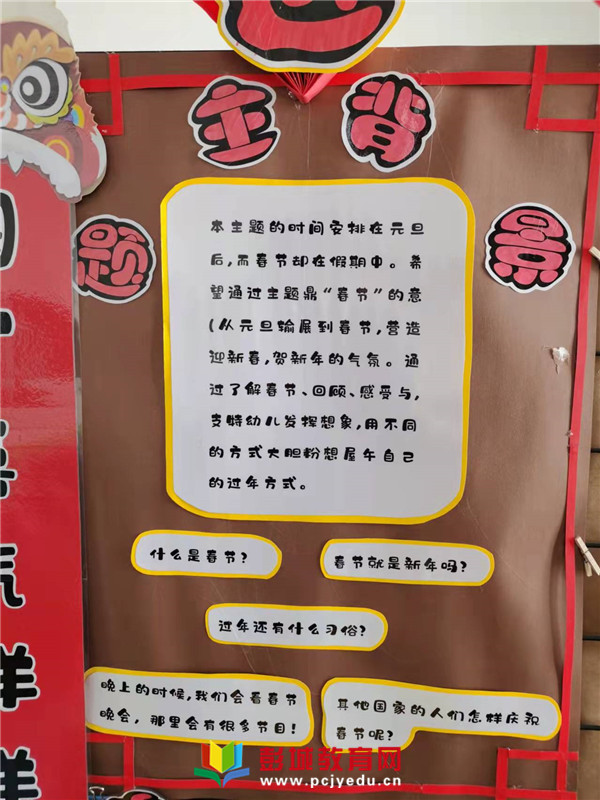 主题背景
本主题的时间安排在元旦
后,而春节却在假期中。希
望通过主题鼎“春节”的意
(从元旦输展到春节,营造
迎新春,贺新年的气氛。通
过了解春节、回顾、感受与,
支特幼儿发挥想象,用不同
的方式大胆粉想屋午自己
的过年方式。
什么是春节?
春节就是新年吗?
过年还有什么习俗?
晚上的时候,我们会看春节
晚会,那里会有很多节目!
其他国家的人们怎样庆祝
春节呢?
彭城教育网
www.pcjyedu.cn